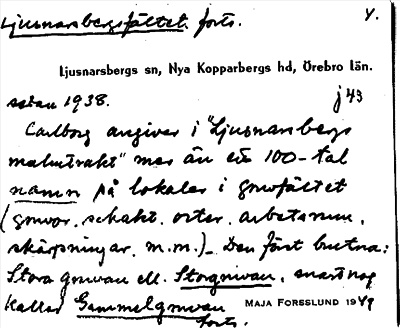 Ljusnarsbergsfältet. forts. 4.
Ljusnarsbergs sn, Nya Kopparbergs hd, Örebro län.
sedan 1938. j 43
Carlborg angiver i "Ljusnarsbergs
malmtrakt" mer än ett 100-tal
namn på lokaler i gruvfältet
(gruvor, schakt, orter, arbetsrum,
skärpningar, m.m.)_ Den först brutna:
Stora gruvan ell. Storgruvan, snart nog
kallad Gammelgruvan
MAJA FORSSLUND 1949
forts.